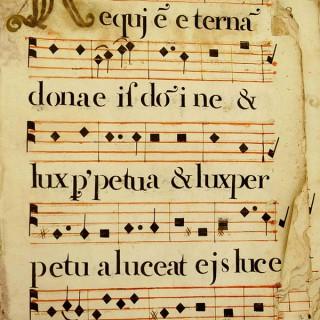 Requj ē e ternā
dona e is do ̄i ne &
lux p'petua & lux per
petu a luceat ejs luce